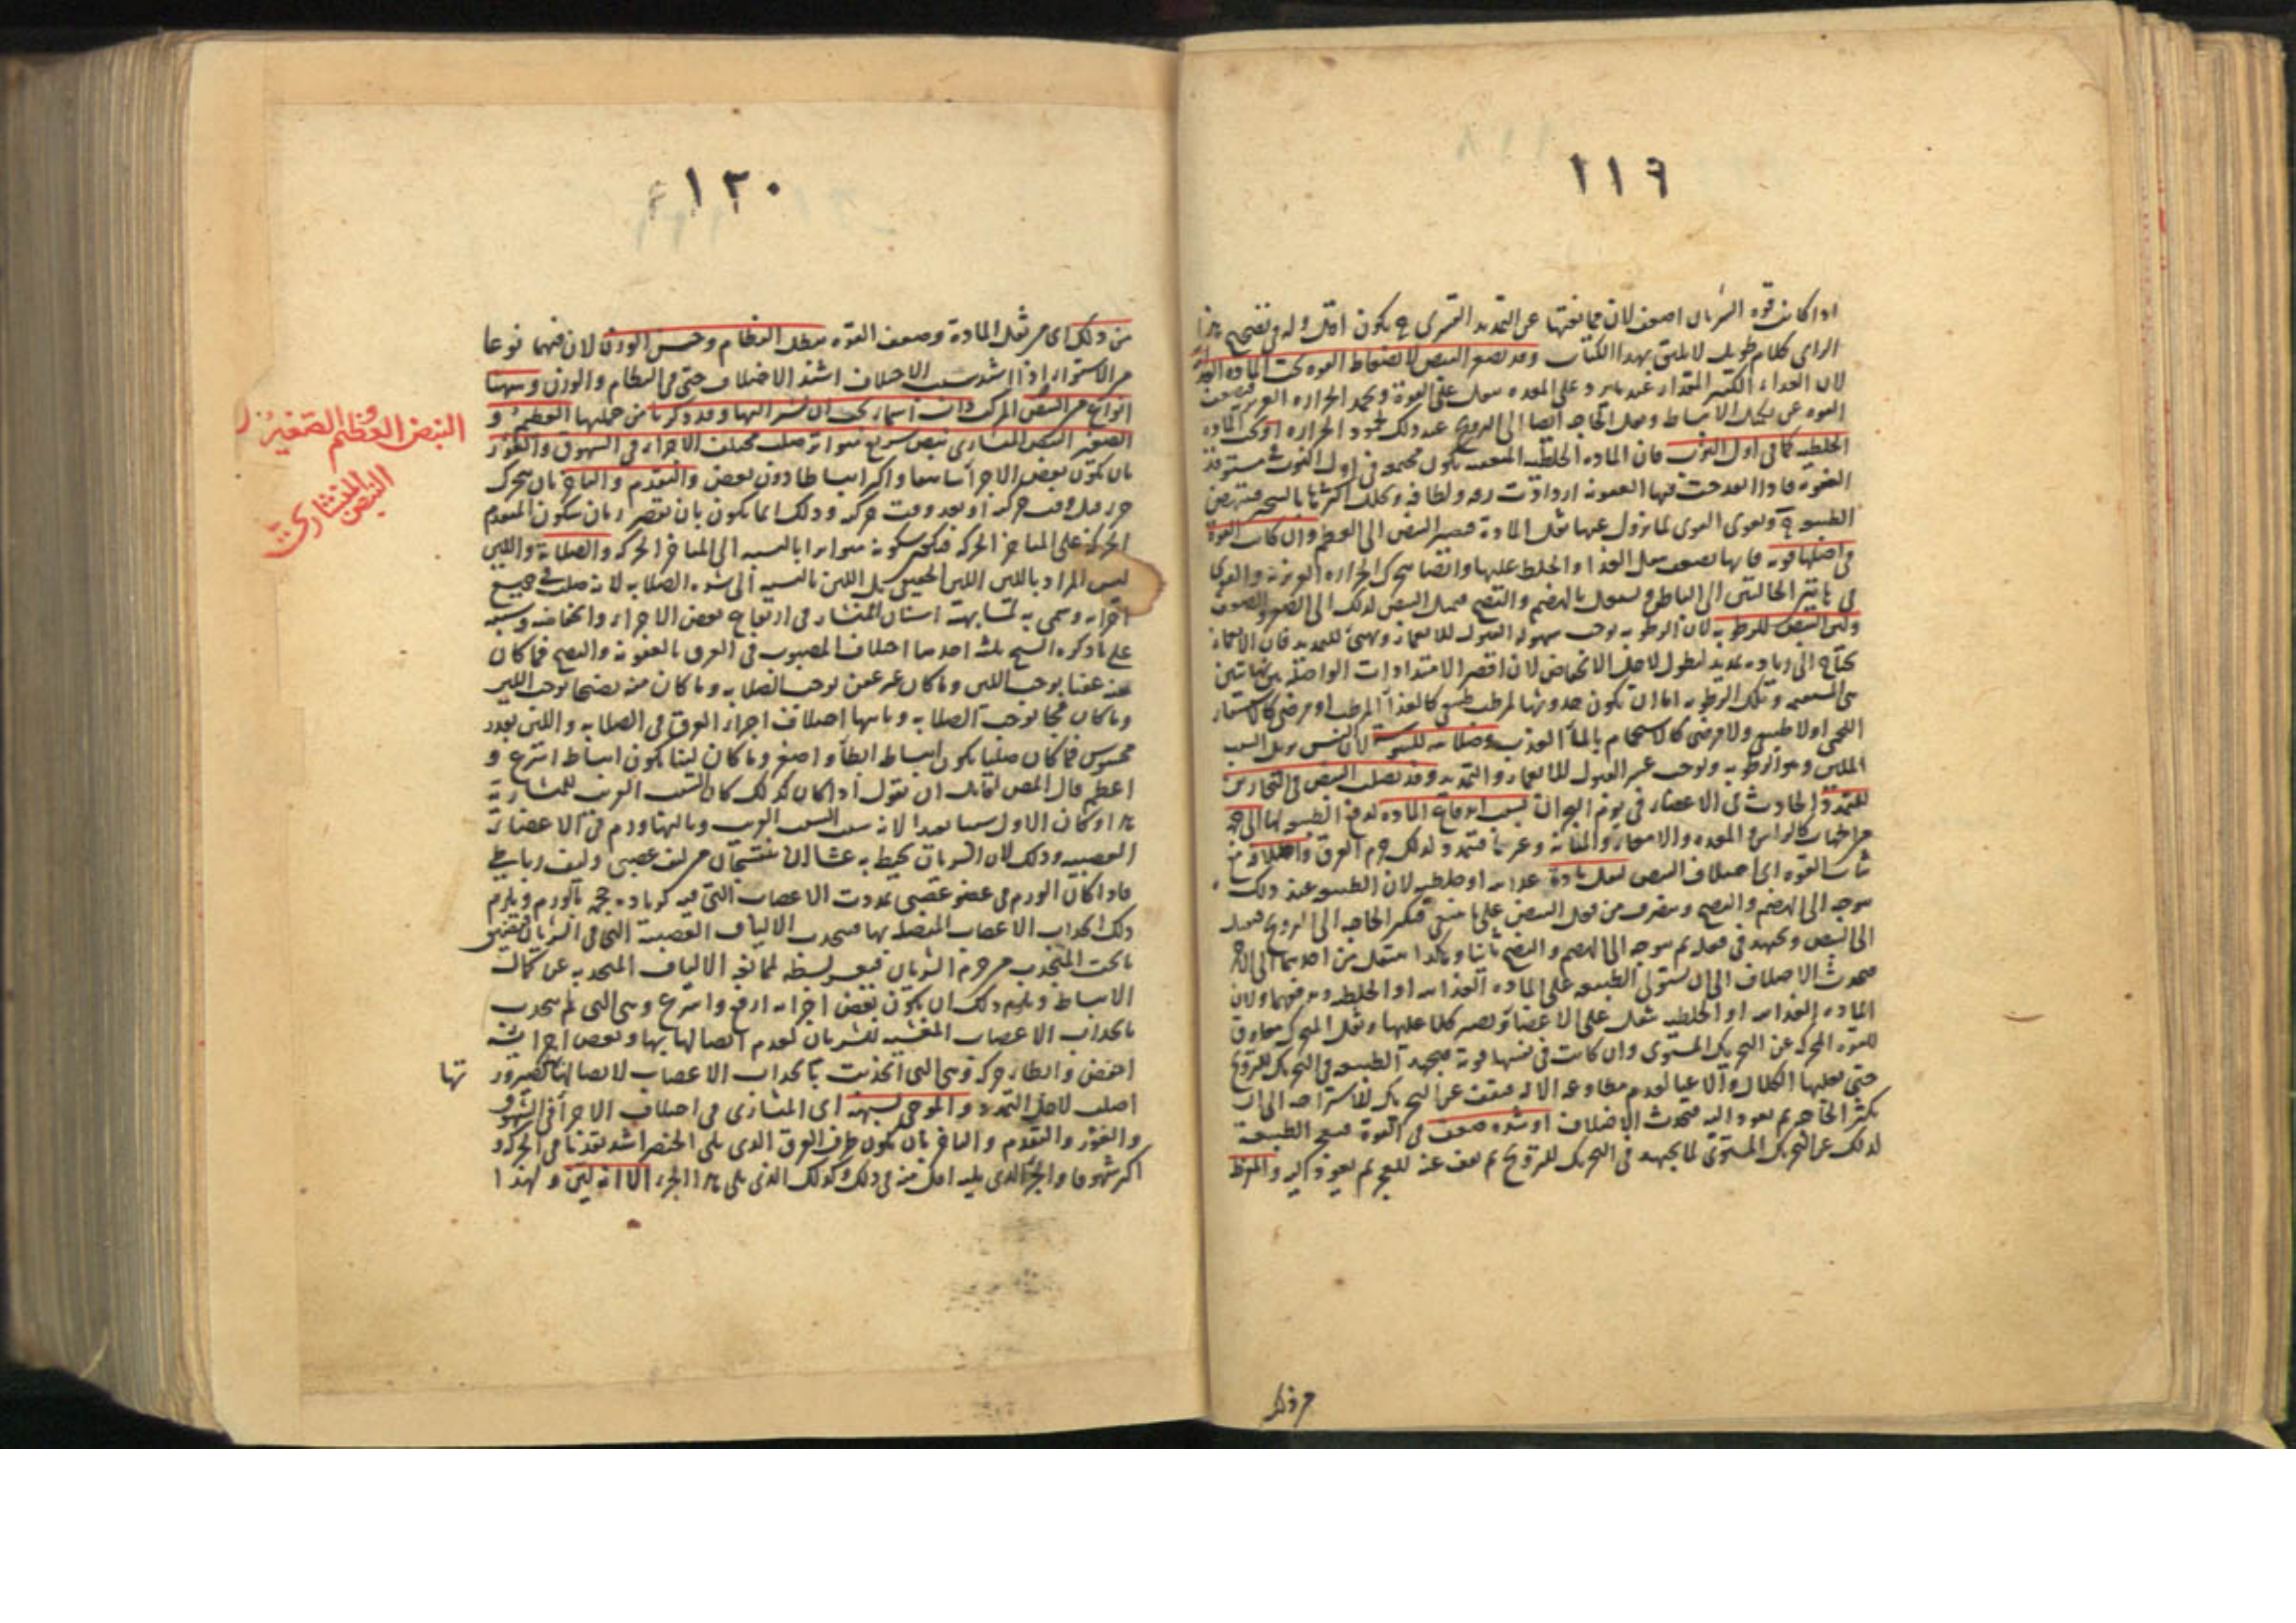 ١١٩
اذا كانت قوة الشريان اضعف لان ممانعتها عن التمديد القسرى ح يكون اقل وله فى تصحيح هذا
الراى كلام طويل لا يليق بهذا الكتاب وقد يصغر النبض لانضغاط القوة تحت المادة
لان الغذاء الكثير المقدار عند ما يرد على المعدة يثقل على القوة ويخمد الحرارة الغريزية
القوة عن تكميل الانبساط ويقل الحاجة ايضا الى الترويح عند ذلك لخمود الحرارة او تحت المادة
الخلطية كما فى اول النوب فان المادة الخلطية المتعفنة يكون مجتمعة فى اول النوبة
العفونة فاذا اخذت فيها العفونة ازدادت رقة ولطافة وتحلل اكثرها بالتبخير
الطبيعة ح ويقوى القوى لما يزول عنها ثقل المادة فيصير النبض الى العظم وان كانت القوة
فى اصلها قوية فانها تضعف بثقل الغذاء والخلط عليها وايضا يتحرك الحرارة الغريزية والقوى
فى هاتين الحالتين الى الباطن ويشتغل بالهضم والنضج فيميل النبض لذلك الى الصغر والضعف
ولين النبض للرطوبة لان الرطوبة توجب سهولة القبول للانغماز وتهيئ للتمديد فان الانغماز
يحتاج الى زيادة تمديد الطول لاجل الانخفاض لان اقصر الامتدادات الواصلة بين نهايتين
هى المستقيمة وتلك الرطوبة اما ان يكون حدوثها لمرطب طبيعى كالغذاء المرطب او مرضى كالاستسقاء
اللحمى او لا طبيعى ولا مرضى كالاستحمام بالماء العذب وصلابته لليبوسة لان اليبس يزيل السبب
الملين وهو الرطوبة ويوجب عسر القبول للانغماز والتمديد وقد يصلب النبض فى البحارين
للتمدد الحادث فى الاعضاء فى يوم البحران بسبب اندفاع المادة لدفع الطبيعة لها الى جهة
من الجهات كالراس والمعدة والامعاء والمثانة وغيرها فتمدد لذلك جرم العرق واختلافه مع
ثبات القوة اى اختلاف النبض لثقل مادة غذائية او خلطية لان الطبيعة عند ذلك
يتوجه الى الهضم والنضج وينصرف من فعل النبض على ما ينبغى فيكثر الحاجة الى الترويح فيعود
الى النبض ويجتهد فى فعله ثم يتوجه الى الهضم والنضج ثانيا وهكذا ينتقل من احدهما الى الآخر
فيحدث الاختلاف الى ان يستولى الطبيعة على المادة الغذائية او الخلطية ويدفعها ولان
المادة الغذائية او الخلطية يثقل على الاعضاء ويصير كلا عليها وثقل المتحرك معاوق
للقوة المحركة عن التحريك المستوى وان كانت فى نفسها قوية فيجتهد الطبيعة فى التحريك للترويح
حتى يغلبها الكلال والاعياء لعدم مطاوعة الآلة فيقف عن التحريك للاستراحة الى ان
يكثر الحاجة ثم يعود اليه فيحدث الاختلاف او شدة ضعف فى القوة فيعجز الطبيعة
لذلك عن التحريك المستوى لما يجتهد فى التحريك للترويح ثم يقف عنه للعجز ثم يعود اليه والمفرط
من ذلك
١٢٠
من ذلك اى من ثقل المادة وضعف القوة يبطل النظام وحسن الوزن لان فيهما نوعا
من الاستواء اذا اشتد سبب الاختلاف اشتد الاختلاف حتى فى النظام والوزن وههنا
انواع من النبض المركب ذات اسماء يجب ان نشير اليها وقد ذكرنا من جملتها العظيم و
الصغير النبض المنشارى نبض سريع متواتر صلب مختلف الاجزاء فى الشهوق والغور
بان يكون بعض الاجزاء شاهقا واكثر انبساطا دون بعض والتقدم والتاخر بان يتحرك
جزء قبل وقت حركته او بعد وقت حركته وذلك انما يكون بان يقصر زمان سكون المتقدم
الحركة على المتاخر الحركة فيكون سكونه متواترا بالنسبة الى المتاخر الحركة والصلابة واللين
ليس المراد باللين اللين الحقيقى بل اللين بالنسبة الى شدة الصلابة لانه صلب فى جميع
اجزائه وسمى به لمشابهته اسنان المنشار فى ارتفاع بعض الاجزاء وانخفاضه وسببه
على ما ذكره الشيخ ثلثة احدها اختلاف المصبوب فى العرق بالعفونة والنضج فما كان
منه عفنا يوجب اللين وما كان غير عفن يوجب الصلابة وما كان منه نضجا يوجب اللين
وما كان فجا يوجب الصلابة وثانيها اختلاف اجزاء العرق فى الصلابة واللين بقدر
محسوس فما كان صلبا يكون انبساطه ابطأ واصغر وما كان لينا يكون انبساطه اسرع و
اعظم قال المص لقائل ان يقول اذا كان كذلك كان السبب القريب للمنشارية
هذا وكان الاول سببا بعيدا لانه سبب السبب القريب وثالثها ورم فى الاعضاء
العصبية وذلك لان الشريان يحيط به غشاءان منتسجان من ليف عصبى وليف رباطى
فاذا كان الورم فى عضو عصبى تمددت الاعصاب التى فيه لزيادة حجمه بالورم ويلزم
ذلك انجذاب الاعصاب المتصلة بها فيتحدب الالياف العصبية التى فى الشريان فيضيق
ما تحت المنجذب من جرم الشريان فيعسر بسطه لممانعة الالياف المنجذبة عن كمال
الانبساط ويلزم ذلك ان يكون بعض اجزائه ارفع واسرع وهى التى لم ينجذب
بانجذاب الاعصاب المغشية للشريان لعدم اتصالها بها وبعض اجزائه
اخفض وابطأ حركة وهى التى انجذبت بانجذاب الاعصاب لاتصالها بها لصيرورتها
اصلب لاجل التمدد والموجى يشبهه اى المنشارى فى اختلاف الاجزاء فى الشهوق
والغور والتقدم والتاخر بان يكون طرف العرق الذى يلى الخنصر اشد تقدما فى الحركة و
اكثر شهوقا والجزء الذى يليه اقل منه فى ذلك وكذلك الذى يلى هذا الجزء الا انه لين ولهذا
النبض العظيم والصغير
النبض المنشارى